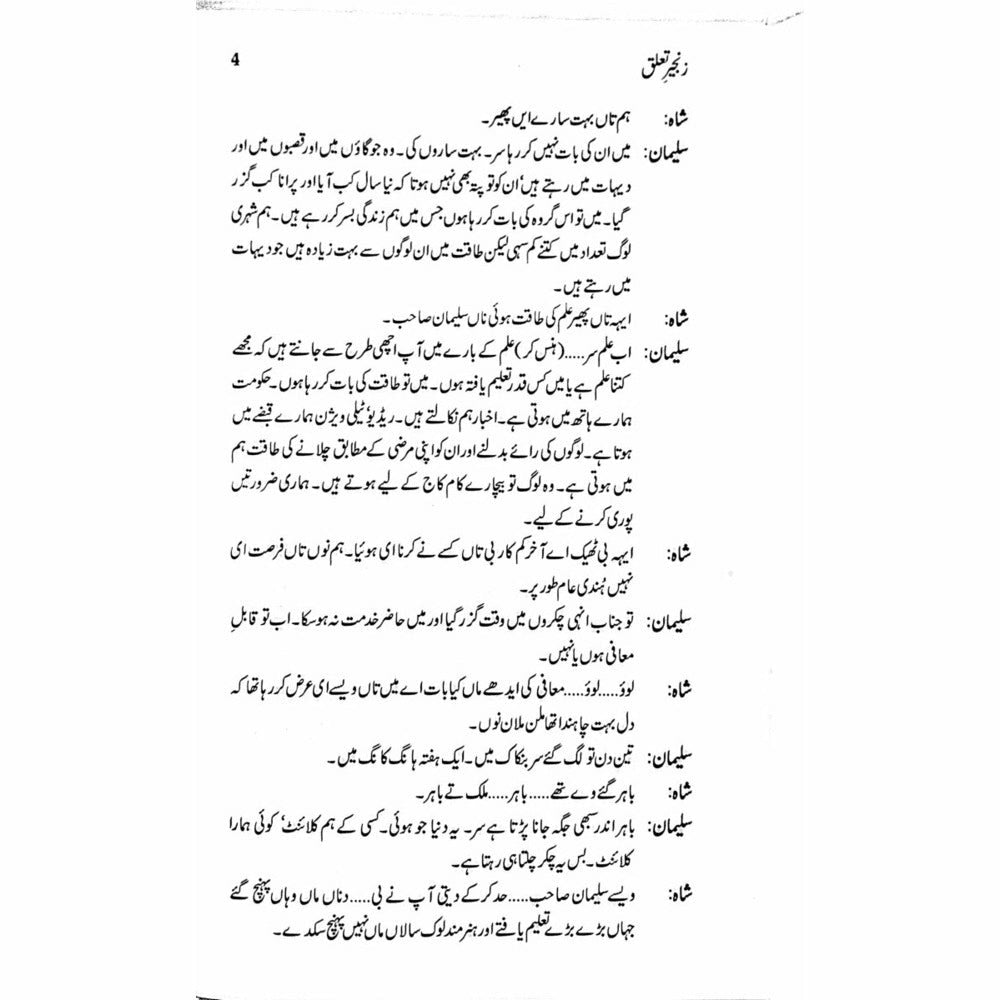 زنجیرِ تعلق 4
شاہ: ہم تاں بہت سارے ایں پھیر۔
سلیمان: میں ان کی بات نہیں کر رہا سر۔ بہت ساروں کی۔ وہ جو گاؤں میں اور قصبوں میں اور
دیہات میں رہتے ہیں‘ ان کو تو پتہ بھی نہیں ہوتا کہ نیا سال کب آیا اور پرانا کب گزر
گیا۔ میں تو اس گروہ کی بات کر رہا ہوں جس میں ہم زندگی بسر کر رہے ہیں۔ ہم شہری
لوگ تعداد میں کتنے کم سہی لیکن طاقت میں ان لوگوں سے بہت زیادہ ہیں جو دیہات
میں رہتے ہیں۔
شاہ: ایہہ تاں پھیر علم کی طاقت ہوئی ناں سلیمان صاحب۔
سلیمان: اب علم سر..... (ہنس کر) علم کے بارے میں آپ اچھی طرح سے جانتے ہیں کہ مجھے
کتنا علم ہے یا میں کس قدر تعلیم یافتہ ہوں۔ میں تو طاقت کی بات کر رہا ہوں۔ حکومت
ہمارے ہاتھ میں ہوتی ہے۔ اخبار ہم نکالتے ہیں۔ ریڈیو‘ ٹیلی ویژن ہمارے قبضے میں
ہوتا ہے۔ لوگوں کی رائے بدلنے اور ان کو اپنی مرضی کے مطابق چلانے کی طاقت ہم
میں ہوتی ہے۔ وہ لوگ تو بیچارے کام کاج کے لیے ہوتے ہیں۔ ہماری ضرورتیں
پوری کرنے کے لیے۔
شاہ: ایہہ بی ٹھیک اے آخر کم کار بی تاں کسے نے کرنا ای ہوئیا۔ ہم نوں تاں فرصت ای
نہیں ہُندی عام طور پر۔
سلیمان: تو جناب انہی چکروں میں وقت گزر گیا اور میں حاضر خدمت نہ ہو سکا۔ اب تو قابلِ
معافی ہوں یا نہیں۔
شاہ: لوؤ.....لوؤ.....معافی کی ایدھے ماں کیا بات اے میں تاں ویسے ای عرض کر رہا تھا کہ
دل بہت چاہندا تھا ملن ملان نوں۔
سلیمان: تین دن تو لگ گئے سر بنکاک میں۔ ایک ہفتہ ہانگ کانگ میں۔
شاہ: باہر گئے وے تھے.....باہر.....ملک تے باہر۔
سلیمان: باہر اندر سبھی جگہ جانا پڑتا ہے سر۔ یہ دنیا جو ہوئی۔ کسی کے ہم کلائنٹ‘ کوئی ہمارا
کلائنٹ۔ بس یہ چکر چلتا ہی رہتا ہے۔
شاہ: ویسے سلیمان صاحب.....حد کر کے دیتی آپ نے بی.....دناں ماں وہاں پہنچ گئے
جہاں بڑے بڑے تعلیم یافتے اور ہنر مند لوک سالاں ماں نہیں پہنچ سکدے۔